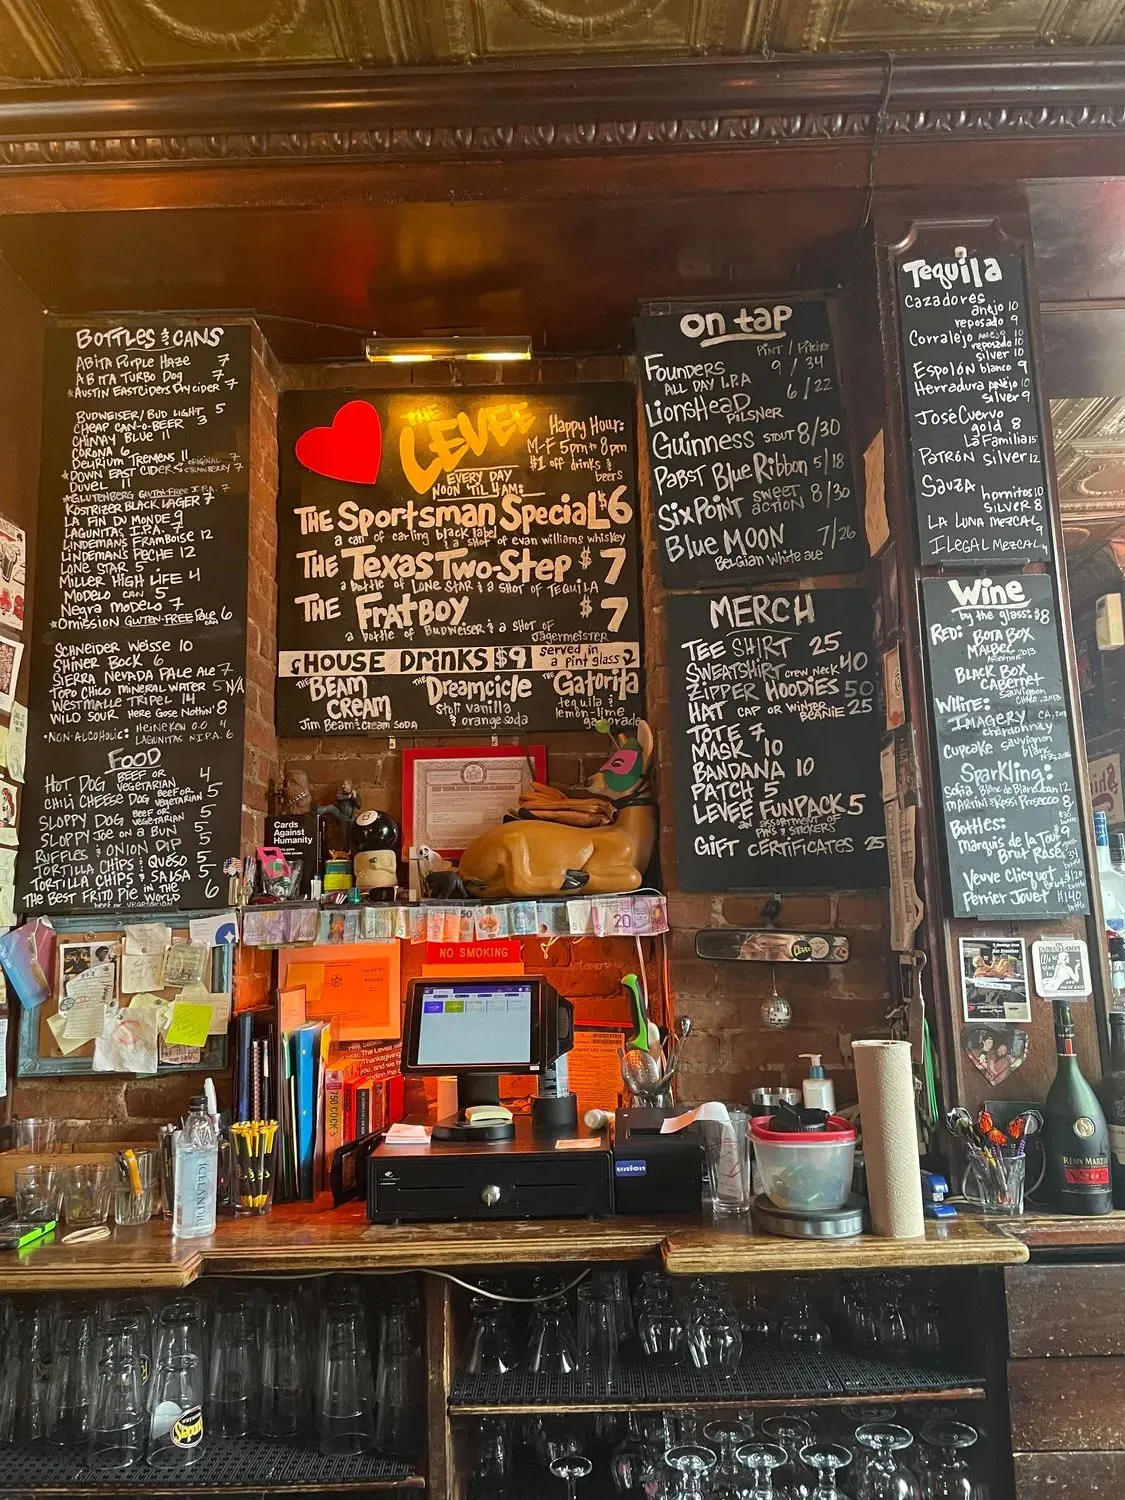 BOTTLES & CANS
ABITA PURPLE HAZE 7
ABITA TURBO DOG 7
* AUSTIN EASTCIDERS DRY CIDER 7
BUDWEISER/BUD LIGHT 5
CHEAP CAN-O-BEER 3
CHIMAY BLUE 11
CORONA 6
DELIRIUM TREMENS 11
* DOWN EAST CIDER ORIGINAL 7
STRAWBERRY 7
DUVEL 11
* GLUTENBERG GLUTEN-FREE I.P.A. 7
KOSTRIZER BLACK LAGER 7
LA FIN DU MONDE 9
LAGUNITAS IPA 7
LINDEMANS FRAMBOISE 12
LINDEMAN'S PECHE 12
LONE STAR 5
MILLER HIGH LIFE 4
MODELO CAN 5
NEGRA MODELO 7
* OMISSION GLUTEN-FREE PALE CAN 6
SCHNEIDER WEISSE 10
SHINER BOCK 6
SIERRA NEVADA PALE ALE 7
TOPO CHICO MINERAL WATER 5 N/A
WESTMALLE TRIPEL 14
WILD SOUR HERE GOSE NOTHIN' 8
• NON-ALCOHOLIC: HEINEKEN 0.0 4
LAGUNITAS N.I.P.A. 6
FOOD
HOT DOG BEEF OR VEGETARIAN 4
CHILI CHEESE DOG BEEF OR VEGETARIAN 5
SLOPPY DOG BEEF OR VEGETARIAN 5
SLOPPY JOE ON A BUN 5
RUFFLES & ONION DIP 5
TORTILLA CHIPS & QUESO 5
TORTILLA CHIPS & SALSA 5
THE BEST FRITO PIE IN THE WORLD 6
beef or vegetarian
THE LEVEE
EVERY DAY
NOON 'TIL 4AM:
Happy Hour:
M-F 5pm to 8pm
$1 off drinks &
beers
THE Sportsman Special $6
a can of carling black label
& a shot of evan williams whiskey
THE Texas Two-Step $7
a bottle of LONE STAR & a SHOT OF TEQUILA
THE FRATBOY $7
a bottle of BUDWEISER & a SHOT OF
Jägermeister
HOUSE DRINKS $9 served in
a pint glass
THE BEAM CREAM
Jim Beam & cream SODA
THE Dreamcicle
Stoli vanilla
& orange soda
THE Gatorita
tequila &
lemon-lime
gatorade
ON TAP
PINT / Pitcher
FOUNDERS 9 / 34
ALL DAY I.P.A
LIONSHEAD 6 / 22
PILSNER
GUINNESS STOUT 8/30
PABST BLUE RIBBON 5/18
SIXPOINT SWEET ACTION 8/30
BLUE MOON 7/26
BELGIAN White ale
MERCH
TEE SHIRT 25
SWEATSHIRT CREW NECK 40
ZIPPER HOODIES 50
HAT CAP OR WINTER BEANIE 25
TOTE 7
MASK 10
BANDANA 10
PATCH 5
LEVEE FUNPACK 5
an ASSORTMENT OF
PINS & STICKERS
GIFT CERTIFICATES 25
Tequila
CAZADORES
añejo 10
reposado 9
Corralejo ANEJO 10
reposado 10
silver 10
ESPOLÓN blanco 9
Herradura añejo 10
silver 9
JOSÉ CUERVO
gold 8
La Familia 15
PATRÓN silver 12
SAUZA hornitos 10
SILVER 8
LA LUNA MEZCAL 9
ILEGAL MEZCAL 9
Wine
by the glass: $8
RED: BOTA BOX
MALBEC
ARGENTINA 2013
BLACK BOX
CABERNET
Sauvignon
CHILE, 2013
WHITE:
IMAGERY CA,
chardonnay
CUPCAKE sauvignon
blanc
Sparkling:
Sofia Blanc de Blanc can 12
MARTINI & ROSSI PROSECCO 8
Bottles:
Marquis de la Tour
Brut Rosé
Veuve Clicquot Brut $120 bottle
Perrier Jouet $140 bottle
Cards
Against
Humanity
8
20
50
NO SMOKING
750 COCK
union
ICELANDIC
RÉMY MARTIN
V.S.O.P